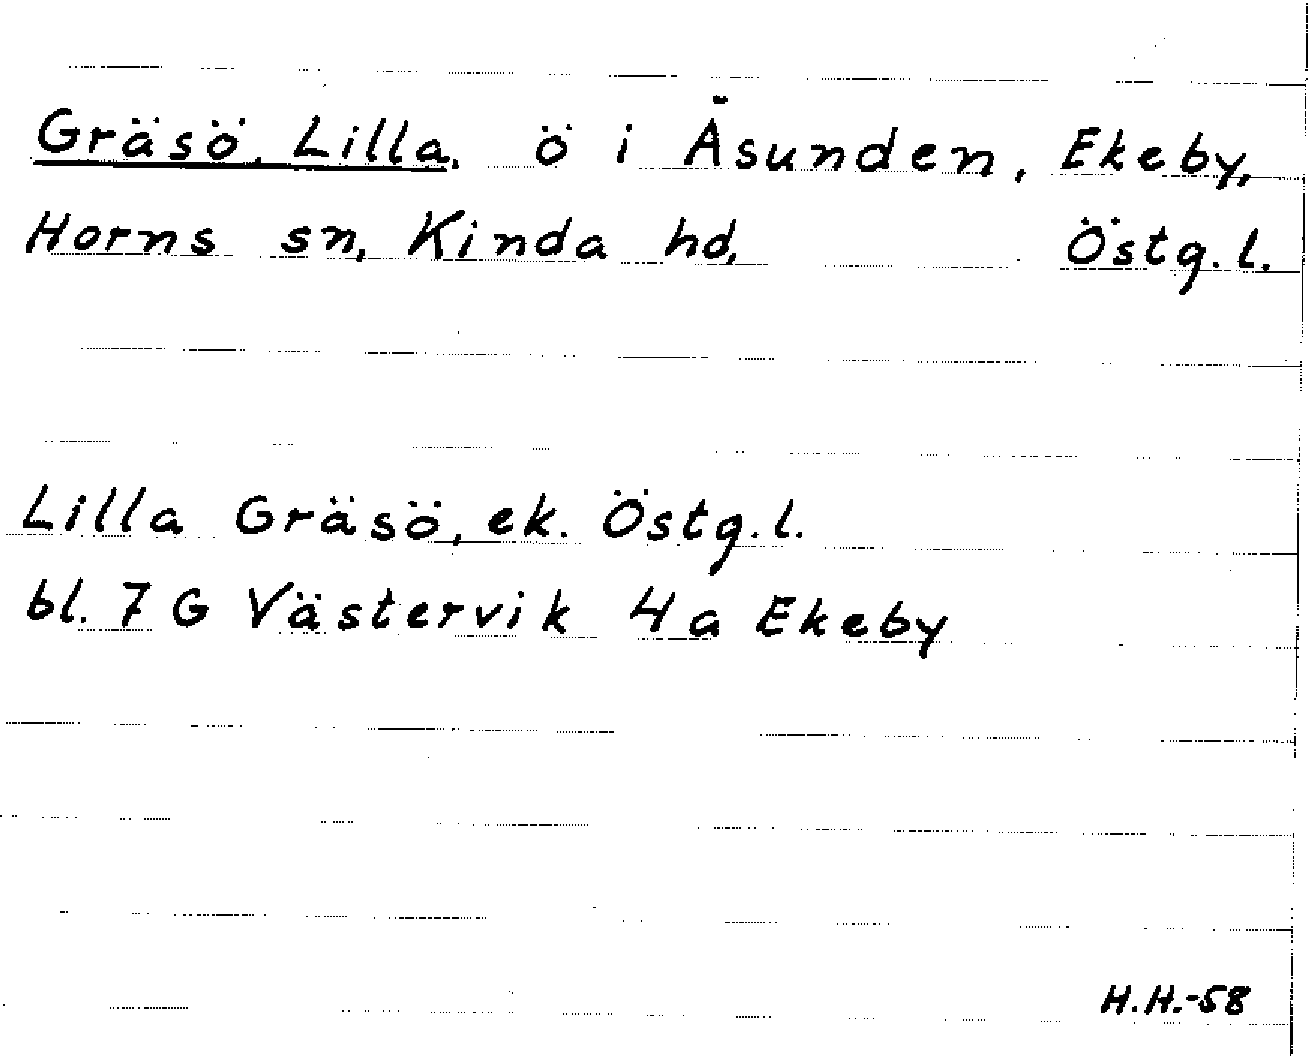 Gräsö, Lilla, ö i Åsunden, Ekeby,
Horns sn, Kinda hd, Östg. l.
Lilla Gräsö, ek. Östg. l.
bl. 7 G Västervik 4a Ekeby
H.H.-58